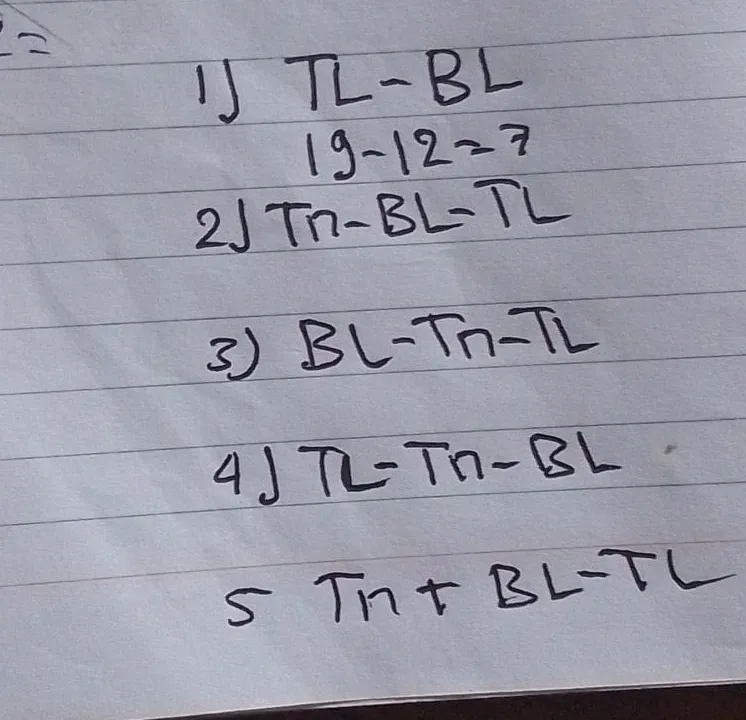 1) TL-BL
19-12=7
2) Tn-BL-TL
3) BL-Tn-TL
4) TL-Tn-BL
5 Tn + BL-TL